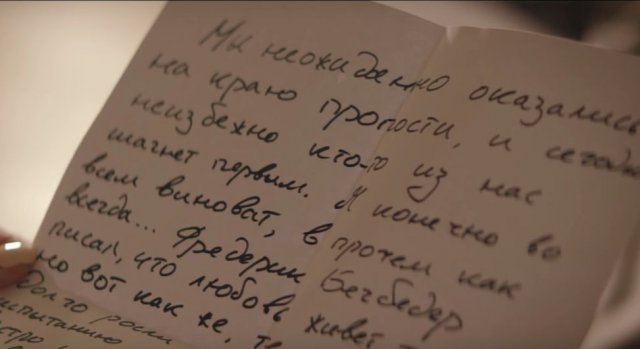 Мы неожиданно оказались
на краю пропасти, и сегодня
неизбежно кто-то из нас
шагнет первым. Я конечно во
всем виноват, в прочем как
всегда... Фредерик Бегбедер
писал, что любовь живет
но вот как же, те
долго